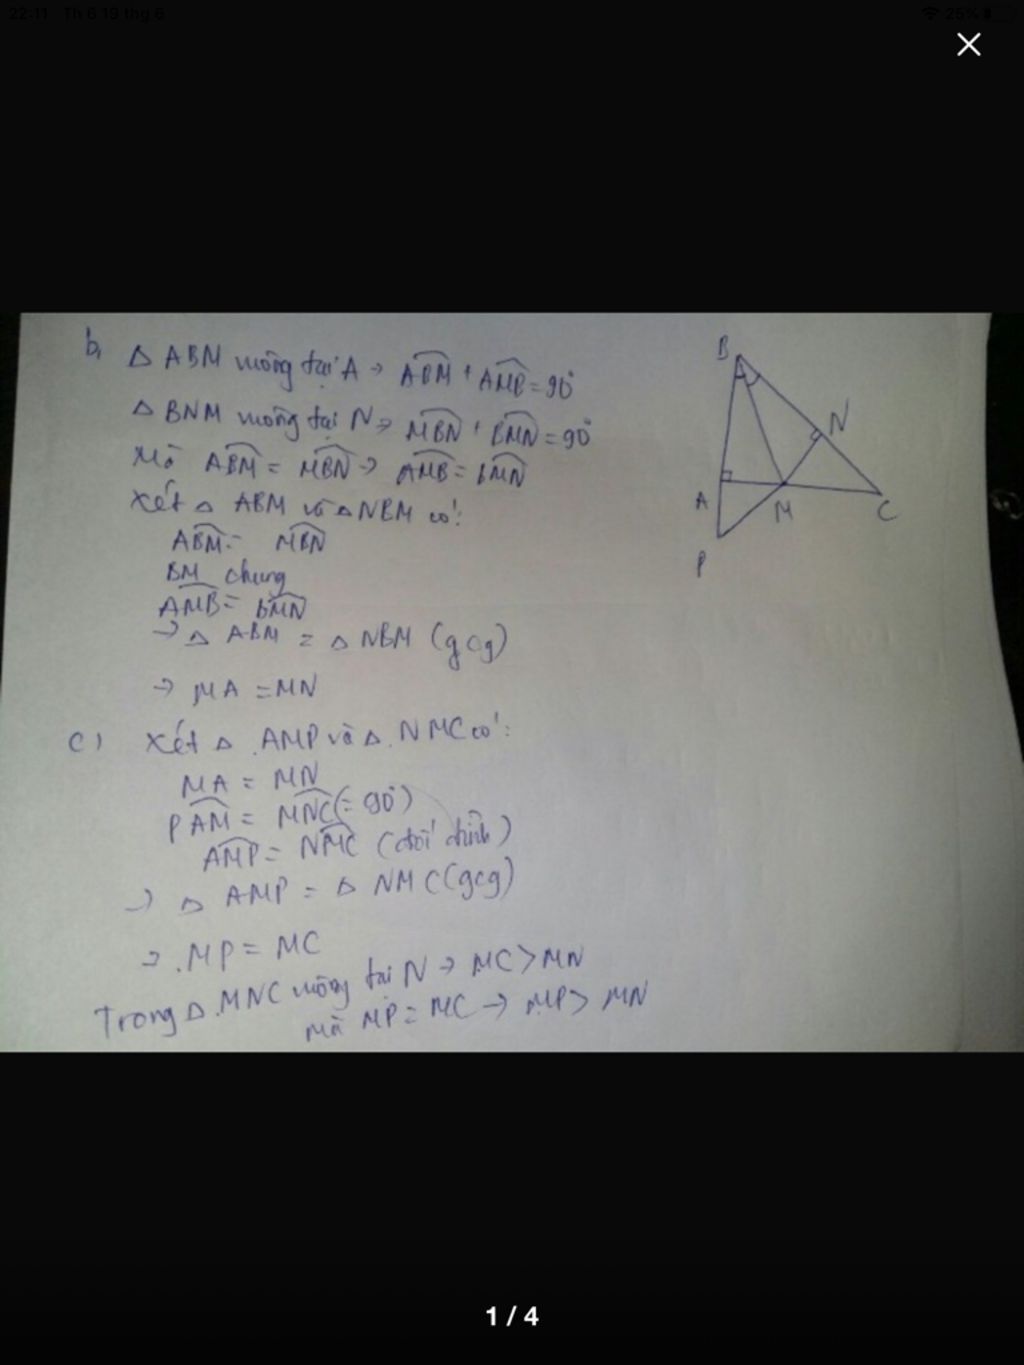 22:11 Th 6 19 thg 6
25%
b, Δ ABM vuông tại A → ABM + AMB = 90°
Δ BNM vuông tại N → MBN + BMN = 90°
Mà ABM = MBN → AMB = BMN
Xét Δ ABM và Δ NBM có:
ABM = MBN
BM chung
AMB = BMN
→ Δ ABM = Δ NBM (gcg)
→ MA = MN
c) Xét Δ AMP và Δ NMC có:
MA = MN
PAM = MNC (= 90°)
AMP = NMC (đối đỉnh)
→ Δ AMP = Δ NMC (gcg)
→ MP = MC
Trong Δ MNC vuông tại N → MC > MN
mà MP = MC → MP > MN
B
N
A
M
C
P
1 / 4